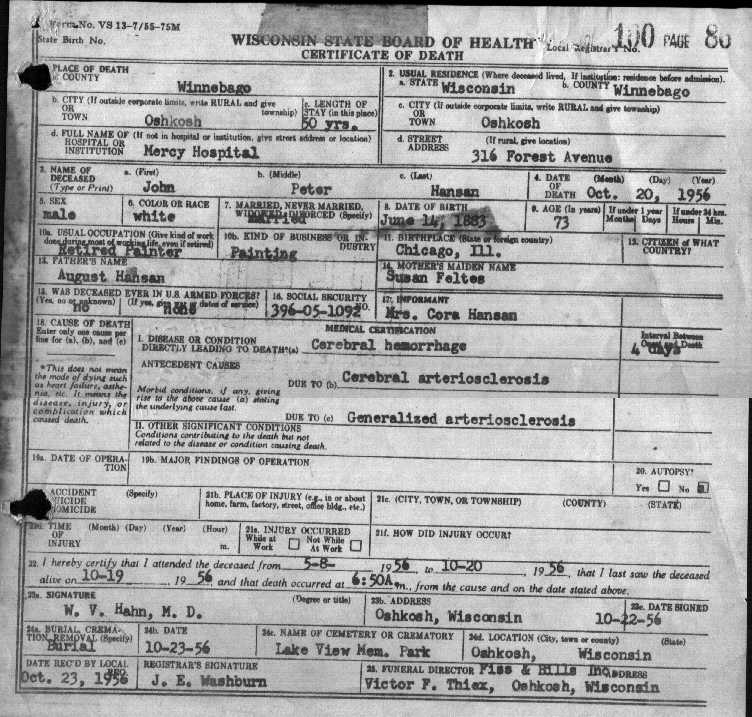 Form No. VS 13-7/55-75M
State Birth No.
WISCONSIN STATE BOARD OF HEALTH
CERTIFICATE OF DEATH
Local Registrar's No. 100 PAGE 86
PLACE OF DEATH
a. COUNTY Winnebago
2. USUAL RESIDENCE (Where deceased lived, If institution: residence before admission).
a. STATE Wisconsin b. COUNTY Winnebago
b. CITY (If outside corporate limits, write RURAL and give township)
OR TOWN Oshkosh
c. LENGTH OF STAY (in this place)
50 yrs.
c. CITY (If outside corporate limits, write RURAL and give township)
OR TOWN Oshkosh
d. FULL NAME OF (If not in hospital or institution, give street address or location)
HOSPITAL OR INSTITUTION Mercy Hospital
d. STREET ADDRESS (If rural, give location)
316 Forest Avenue
3. NAME OF DECEASED (Type or Print)
a. (First) b. (Middle) c. (Last)
John Peter Hansan
4. DATE OF DEATH (Month) (Day) (Year)
Oct. 20, 1956
5. SEX
male
6. COLOR OR RACE
white
7. MARRIED, NEVER MARRIED, WIDOWED, DIVORCED (Specify)
married
8. DATE OF BIRTH
June 14, 1883
9. AGE (In years)
73
If under 1 year
Months Days
If under 24 hrs.
Hours Min.
10a. USUAL OCCUPATION (Give kind of work done during most of working life, even if retired)
Retired Painter
10b. KIND OF BUSINESS OR INDUSTRY
Painting
11. BIRTHPLACE (State or foreign country)
Chicago, Ill.
12. CITIZEN OF WHAT COUNTRY?
13. FATHER'S NAME
August Hansan
14. MOTHER'S MAIDEN NAME
Susan Feltes
15. WAS DECEASED EVER IN U.S. ARMED FORCES?
(Yes, no or unknown) (If yes, give war or dates of service)
no none
16. SOCIAL SECURITY NO.
396-05-1092
17. INFORMANT
Mrs. Cora Hansan
18. CAUSE OF DEATH
Enter only one cause per line for (a), (b), and (c)
MEDICAL CERTIFICATION
Interval Between Onset and Death
I. DISEASE OR CONDITION
DIRECTLY LEADING TO DEATH*(a) Cerebral hemorrhage 4 days
*This does not mean the mode of dying such as heart failure, asthenia, etc. It means the disease, injury, or complication which caused death.
ANTECEDENT CAUSES
DUE TO (b) Cerebral arteriosclerosis
Morbid conditions, if any, giving rise to the above cause (a) stating the underlying cause last.
DUE TO (c) Generalized arteriosclerosis
II. OTHER SIGNIFICANT CONDITIONS
Conditions contributing to the death but not related to the disease or condition causing death.
19a. DATE OF OPERATION
19b. MAJOR FINDINGS OF OPERATION
20. AUTOPSY?
Yes No
ACCIDENT (Specify)
SUICIDE
HOMICIDE
21b. PLACE OF INJURY (e.g., in or about home, farm, factory, street, office bldg., etc.)
21c. (CITY, TOWN, OR TOWNSHIP) (COUNTY) (STATE)
21d. TIME OF INJURY (Month) (Day) (Year) (Hour) m.
21e. INJURY OCCURRED
While at Work Not While At Work
21f. HOW DID INJURY OCCUR?
22. I hereby certify that I attended the deceased from 5-8- 1956 to 10-20 1956, that I last saw the deceased
alive on 10-19, 1956 and that death occurred at 6:50A.m., from the cause and on the date stated above.
23a. SIGNATURE (Degree or title)
W. V. Hahn, M. D.
23b. ADDRESS
Oshkosh, Wisconsin
23c. DATE SIGNED
10-22-56
24a. BURIAL, CREMATION, REMOVAL (Specify)
Burial
24b. DATE
10-23-56
24c. NAME OF CEMETERY OR CREMATORY
Lake View Mem. Park
24d. LOCATION (City, town or county) (State)
Oshkosh, Wisconsin
DATE REC'D BY LOCAL REG.
Oct. 23, 1956
REGISTRAR'S SIGNATURE
J. E. Washburn
25. FUNERAL DIRECTOR Fiss & Bills Inc. ADDRESS
Victor F. Thiex, Oshkosh, Wisconsin